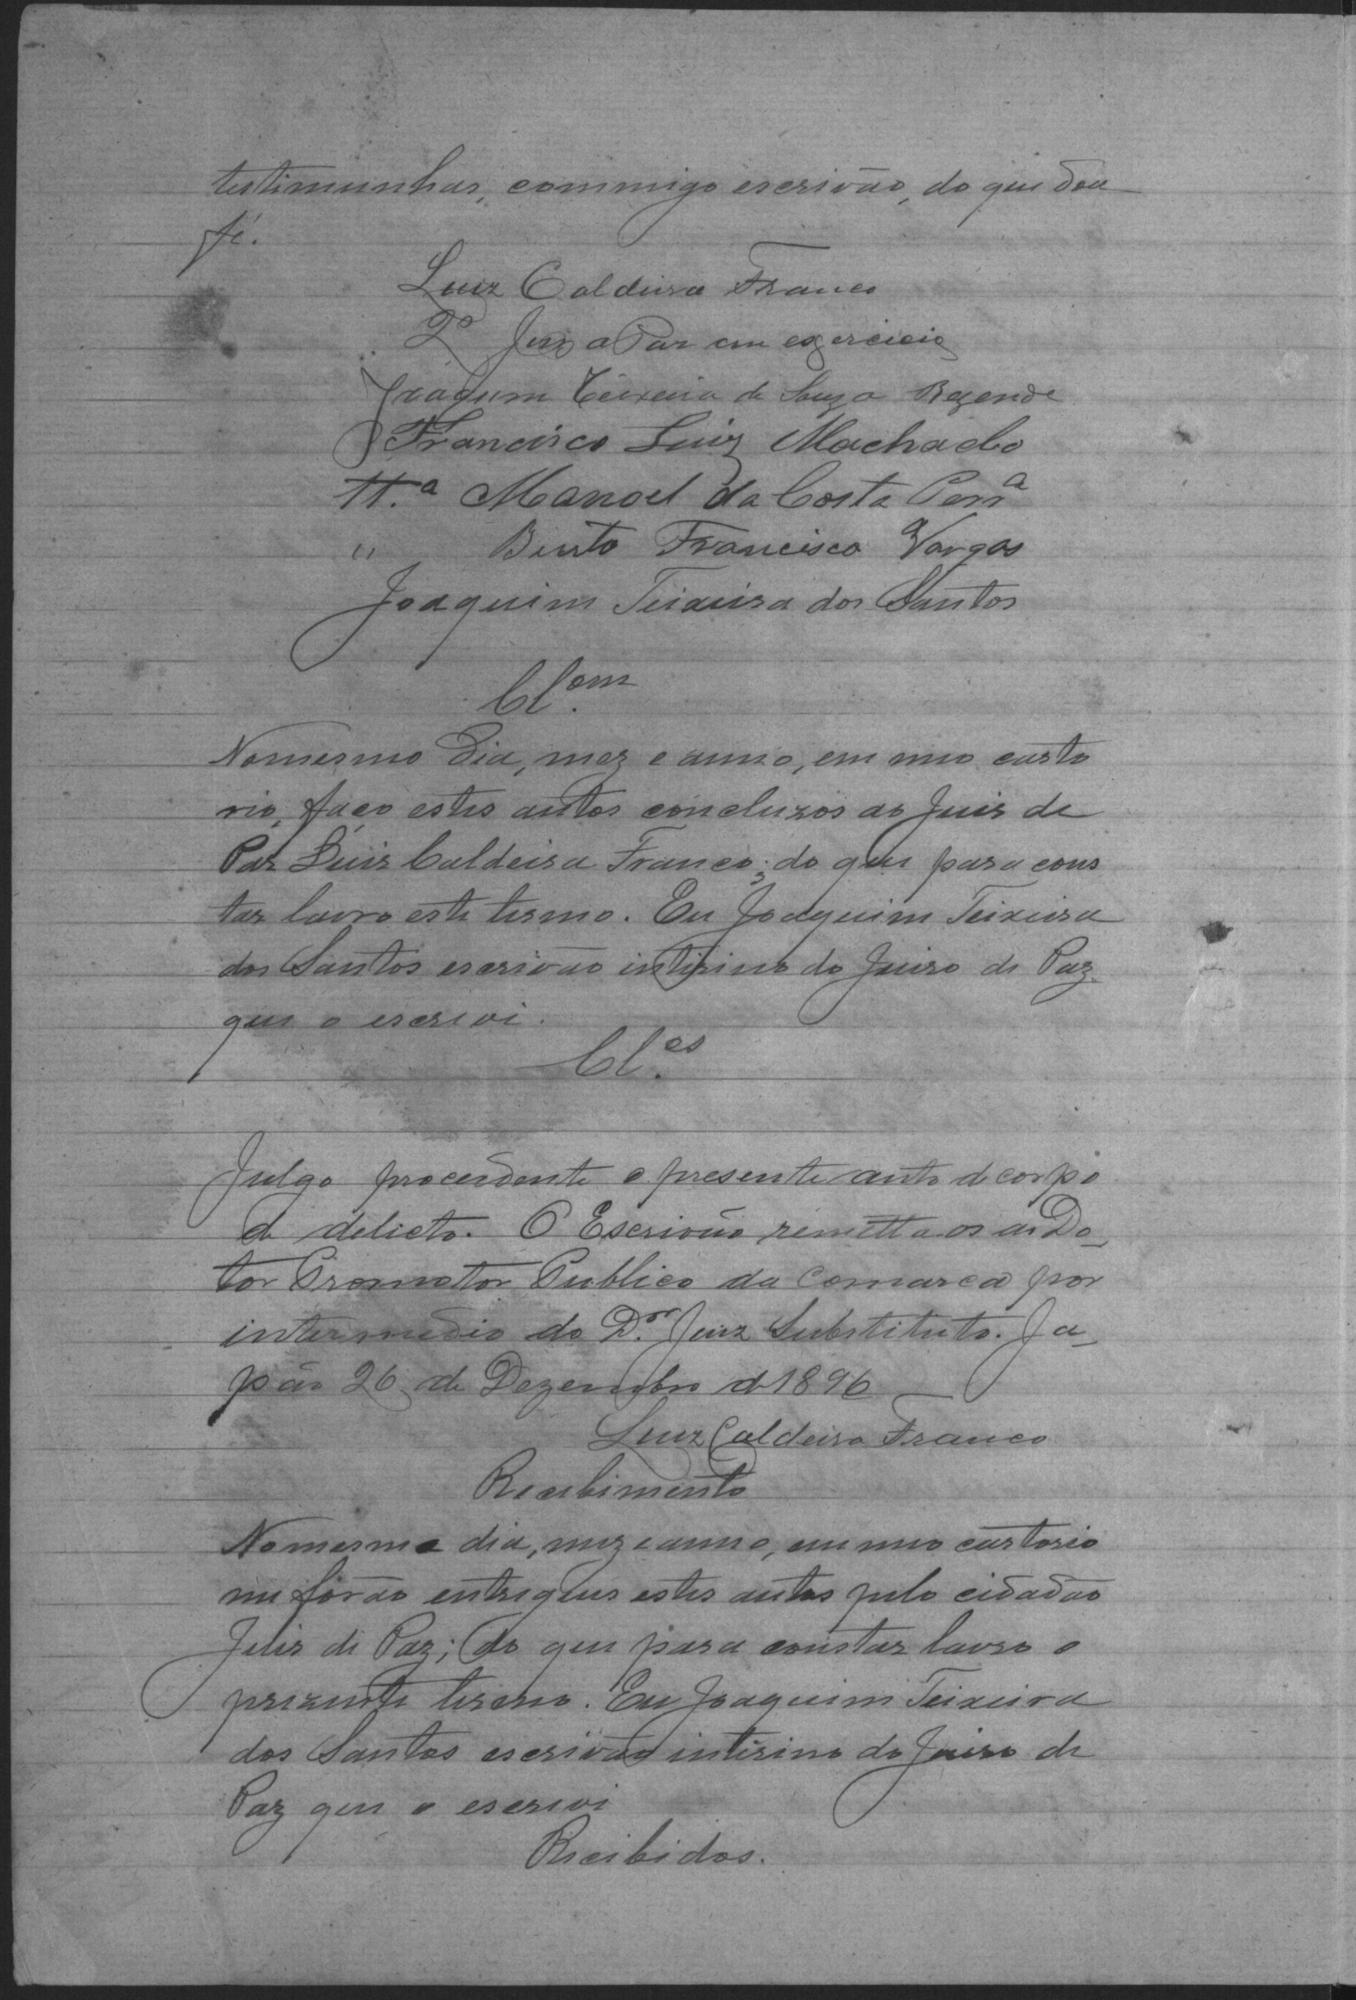 testimunhas, commigo escrivão, do que dou
fé.
Luiz Caldeira Franco
2º Juiz a Paz em exercicio
Joaquim Teixeira de Souza Rezende
Francisco Luiz Machado
Tt.ª Manoel da Costa Perrª
" Bento Francisco Vargas
Joaquim Teixeira dos Santos
Cl.om
No mesmo dia, mez e anno, em meu carto
rio, faço estes autos concluzos ao Juis de
Paz Luis Caldeira Franco; do que para cons
tar lavro este termo. Eu Joaquim Teixeira
dos Santos escrivão intirino do Juiso de Paz
que o escrevi.
Cl.os
Julgo procendente o presente auto de corpo
de delicto. O Escrivão remetta os ao Do-
tor Promotor Publico da Comarca por
intermedio do D.or Juiz Substituto. Ja-
pão 26 de Dezembro d 1896
Luiz Caldeira Franco
Recebimento
No mesmo dia, mez e anno, em meu cartorio
me forão entregues estes autos pelo cidadão
Juis de Paz; do que para constar lavro o
prezente termo. Eu Joaquim Teixeira
dos Santos escrivão intirino do Juiso de
Paz que o escrevi
Recibidos.